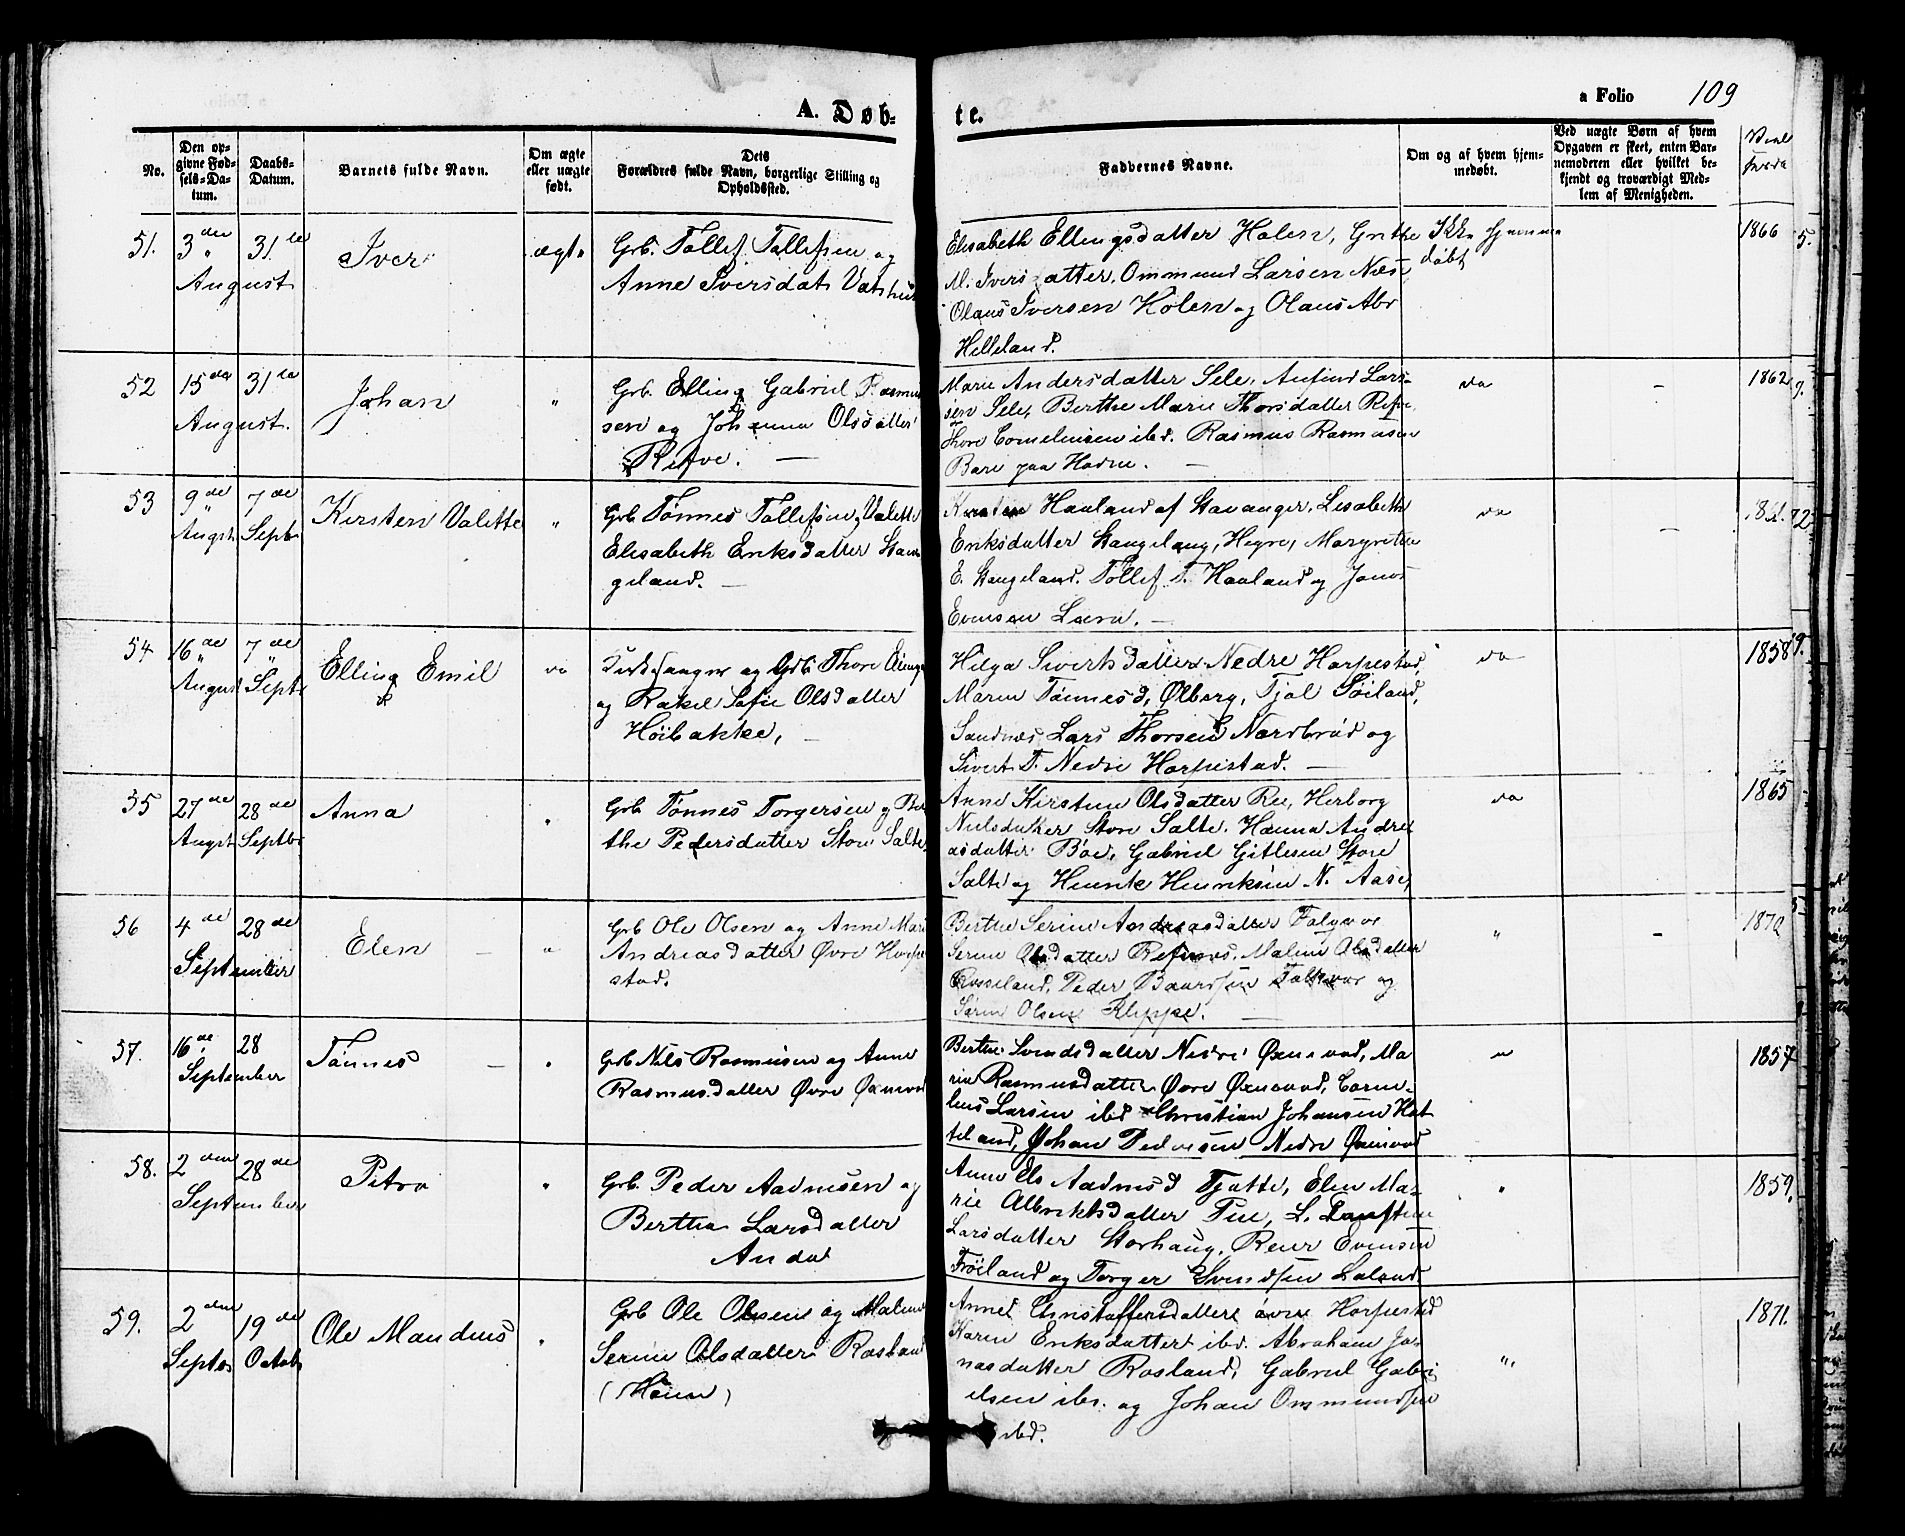 A. Døb-
te.
a Folio 109
No.
Den op-
givne Fød-
sels-Da-
tum.
Daabs-
Datum.
Barnets fulde Navn.
Om ægte
eller uægte
født.
Dets
Forældres fulde Navn, borgerlige Stilling og
Opholdssted.
Faddernes Navne.
Om og af hvem hjem-
medøbt.
Ved uægte Børn af hvem
Opgaven er skeet, enten Bar-
nemoderen eller hvilket be-
kjendt og troværdigt Med-
lem af Menigheden.
51.
3
August
31
Iver
ægte
Grb. Tollef Tollefsen og
Anne Iversdat
Elisabeth Ellingsdatter Holen, Grethe
M. Iversdatter, Ommund Larsen Næse
Olaus Iversen Holen og Olaus Abr
Helleland.
Ikke hjemme
døbt
1866
52
15
August.
31
Johan
"
Grb. Elling Gabriel Rasmus
sen og Johanna Olsdatter
Refve. —
Marie Andersdatter Sele, Anfind Lars-
sen Sele, Berthe Marie Thorsdatter Refve
Thore Corneliusen ibd. Rasmus Rasmusen
Bore paa Hodne. —
do
-
1862
53
9de
August
7de
Septb
Kirsten Valette
"
Grb Tønnes Tollefsen, Valette
Elisabeth Eriksdatter Stan
geland. —
Kirsten Haaland af Stavanger, Lisabeth
Eriksdatter Stangeland, Hegre, Margrethe
E. Stangeland. Tollef T. Haaland og Jonas
Evensen Lura. —
do
—
54
16de
August
7de
Septb
Elling Emil
do
Kirkesanger og Grb Thore
og Rakel Sofie Olsdatter
Høibakke, —
Helga Sivertsdatter Nedre Horpestad,
Maren Tønnesd, Ølberg, Tjol Søiland,
Sandnes, Lars Thorsen Nærbrød og
Sivert T. Nedre Horpestad. —
do
1858
55
27de
August
28de
Septbr
Anna
"
Grb Tønnes Torgersen og Ber
the Pedersdatter Store Salte
Anne Kirstine Olsdatter Ree, Herborg
Nielsdatter Store Salte. Hanna Andre
asdatter Bøe, Gabriel Gitlesen Store
Salte og Henrik Henriksen N. Aase,
do
1865
56
4de
September
28de
Elen —
"
Grb Ole Olsen og Anne Mari
Andreasdatter Øvre Horpe
stad.
Berthe Serine Andreasdatter
Serine Olsdatter Refsnes, Malene Olsdatter
Rosseland, Peder Baardsen og
Søren Olsen Kleppe. —
"
-
1870
57.
16de
September
28
Tønnes —
"
Grb Nils Rasmusen og Anne
Rasmusdatter Øvre Øxnevad
Berthe Svendsdatter Nedre Øxnevad, Ma
rie Rasmusdatter Øvre Øxnevad, Corne-
lius Larsen ibd Christian Johansen Hat
teland, Johan Pedersen Nedre Øxnevad
"
1857
58.
2
September
28de
Petra
"
Grb. Peder Aadnesen og
Berthe Larsdatter
Anda
Anne Els Aadnesd Tjøtte, Elen Ma-
rie Albriktsdatter Tu, L.
Larsdatter Storhaug, Reier Evensen
Frøiland og Torger Svendsen Laland.
"
1859.
59.
2
Septbr
19de
Octobr
Ole Mandius
"
Grb Ole Olsen og Malene
Serine Olsdatter Rosland
(Moen)
Anne Christoffersdatter øvre Horpestad
Karen Eriksdatter ibd. Abraham Jo-
nasdatter Rosland, Gabriel Gabri
elsen ibd. og Johan Ommundsen
ibd.
"
1871.